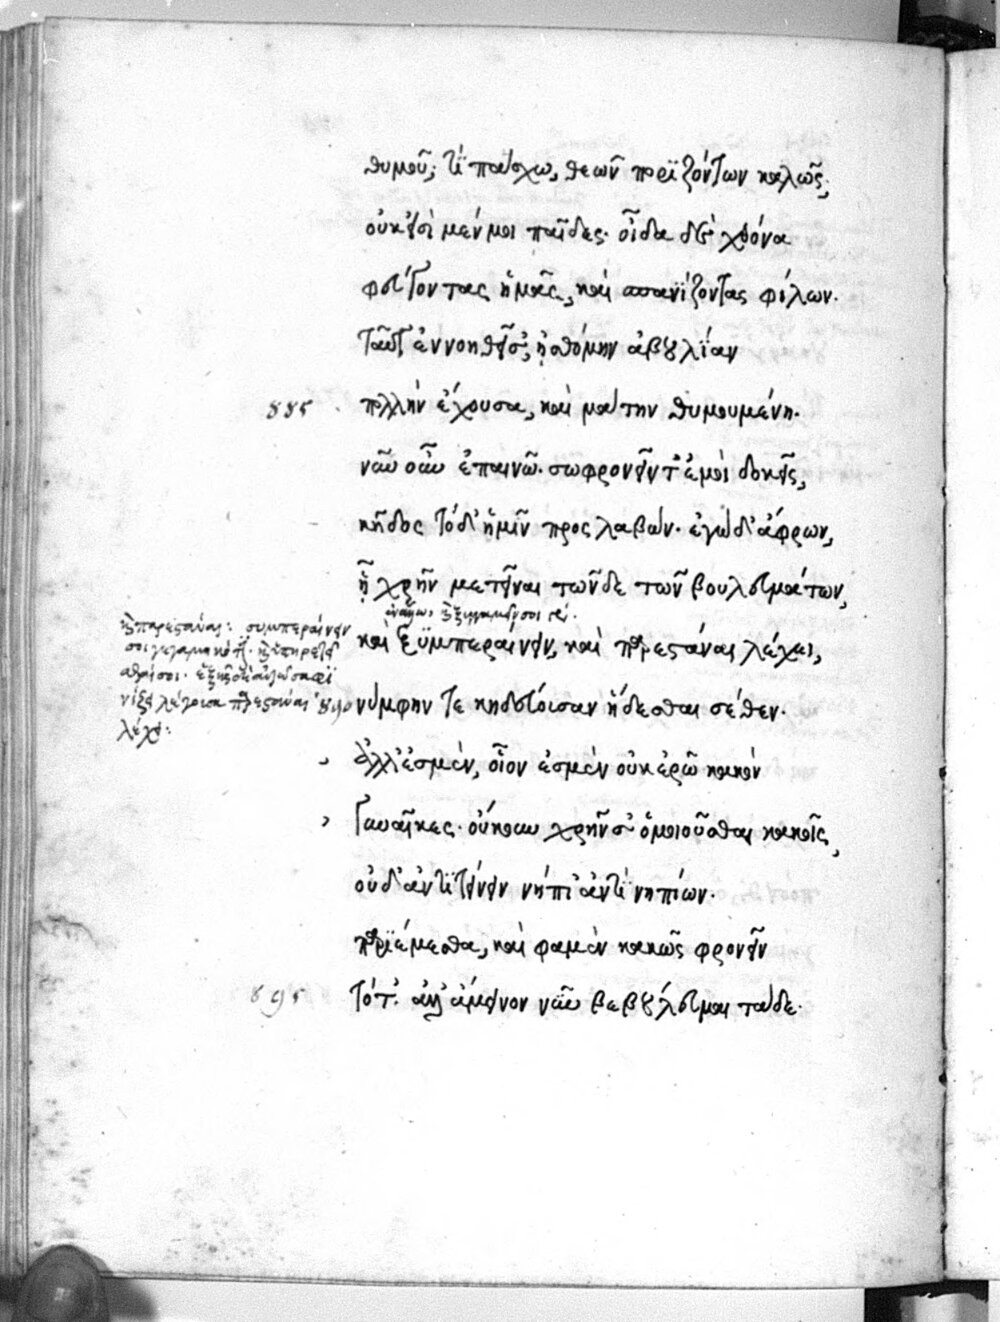 θυμοῦ; τί πάσχω, θεῶν ποριζόντων καλῶς;
οὐκ εἰσὶ μέν μοι παῖδες· οἶδα δὲ χθόνα
φεύγοντας ἡμᾶς, καὶ σπανίζοντας φίλων.
ταῦτ' ἐννοηθεῖσ', ᾐσθόμην ἀβουλίαν
885 πολλὴν ἔχουσα, καὶ μάτην θυμουμένη.
νῦν οὖν ἐπαινῶ· σωφρονεῖν τ' ἐμοὶ δοκεῖς,
κῆδος τόδ' ἡμῖν προσλαβών· ἐγὼ δ' ἄφρων,
ᾗ χρῆν μετεῖναι τῶνδε τῶν βουλευμάτων,
καὶ ξυμπεραίνειν, καὶ παρεστάναι λέχει,
παρεστάναι: συμπεραίνειν
λέχει:
νύμφην τε κηδεύουσαν ἥδεσθαι σέθεν.
ἀλλ' ἐσμὲν, οἷόν ἐσμεν οὐκ ἐρῶ κακὸν
γυναῖκες· οὔκουν χρῆν σ' ὁμοιοῦσθαι κακοῖς,
οὐδ' ἀντιτείνειν νήπι' ἀντὶ νηπίων.
παριέμεσθα, καὶ φαμὲν κακῶς φρονεῖν
895 τότ'. ἀλλ' ἄμεινον νῦν βεβούλευμαι τάδε.